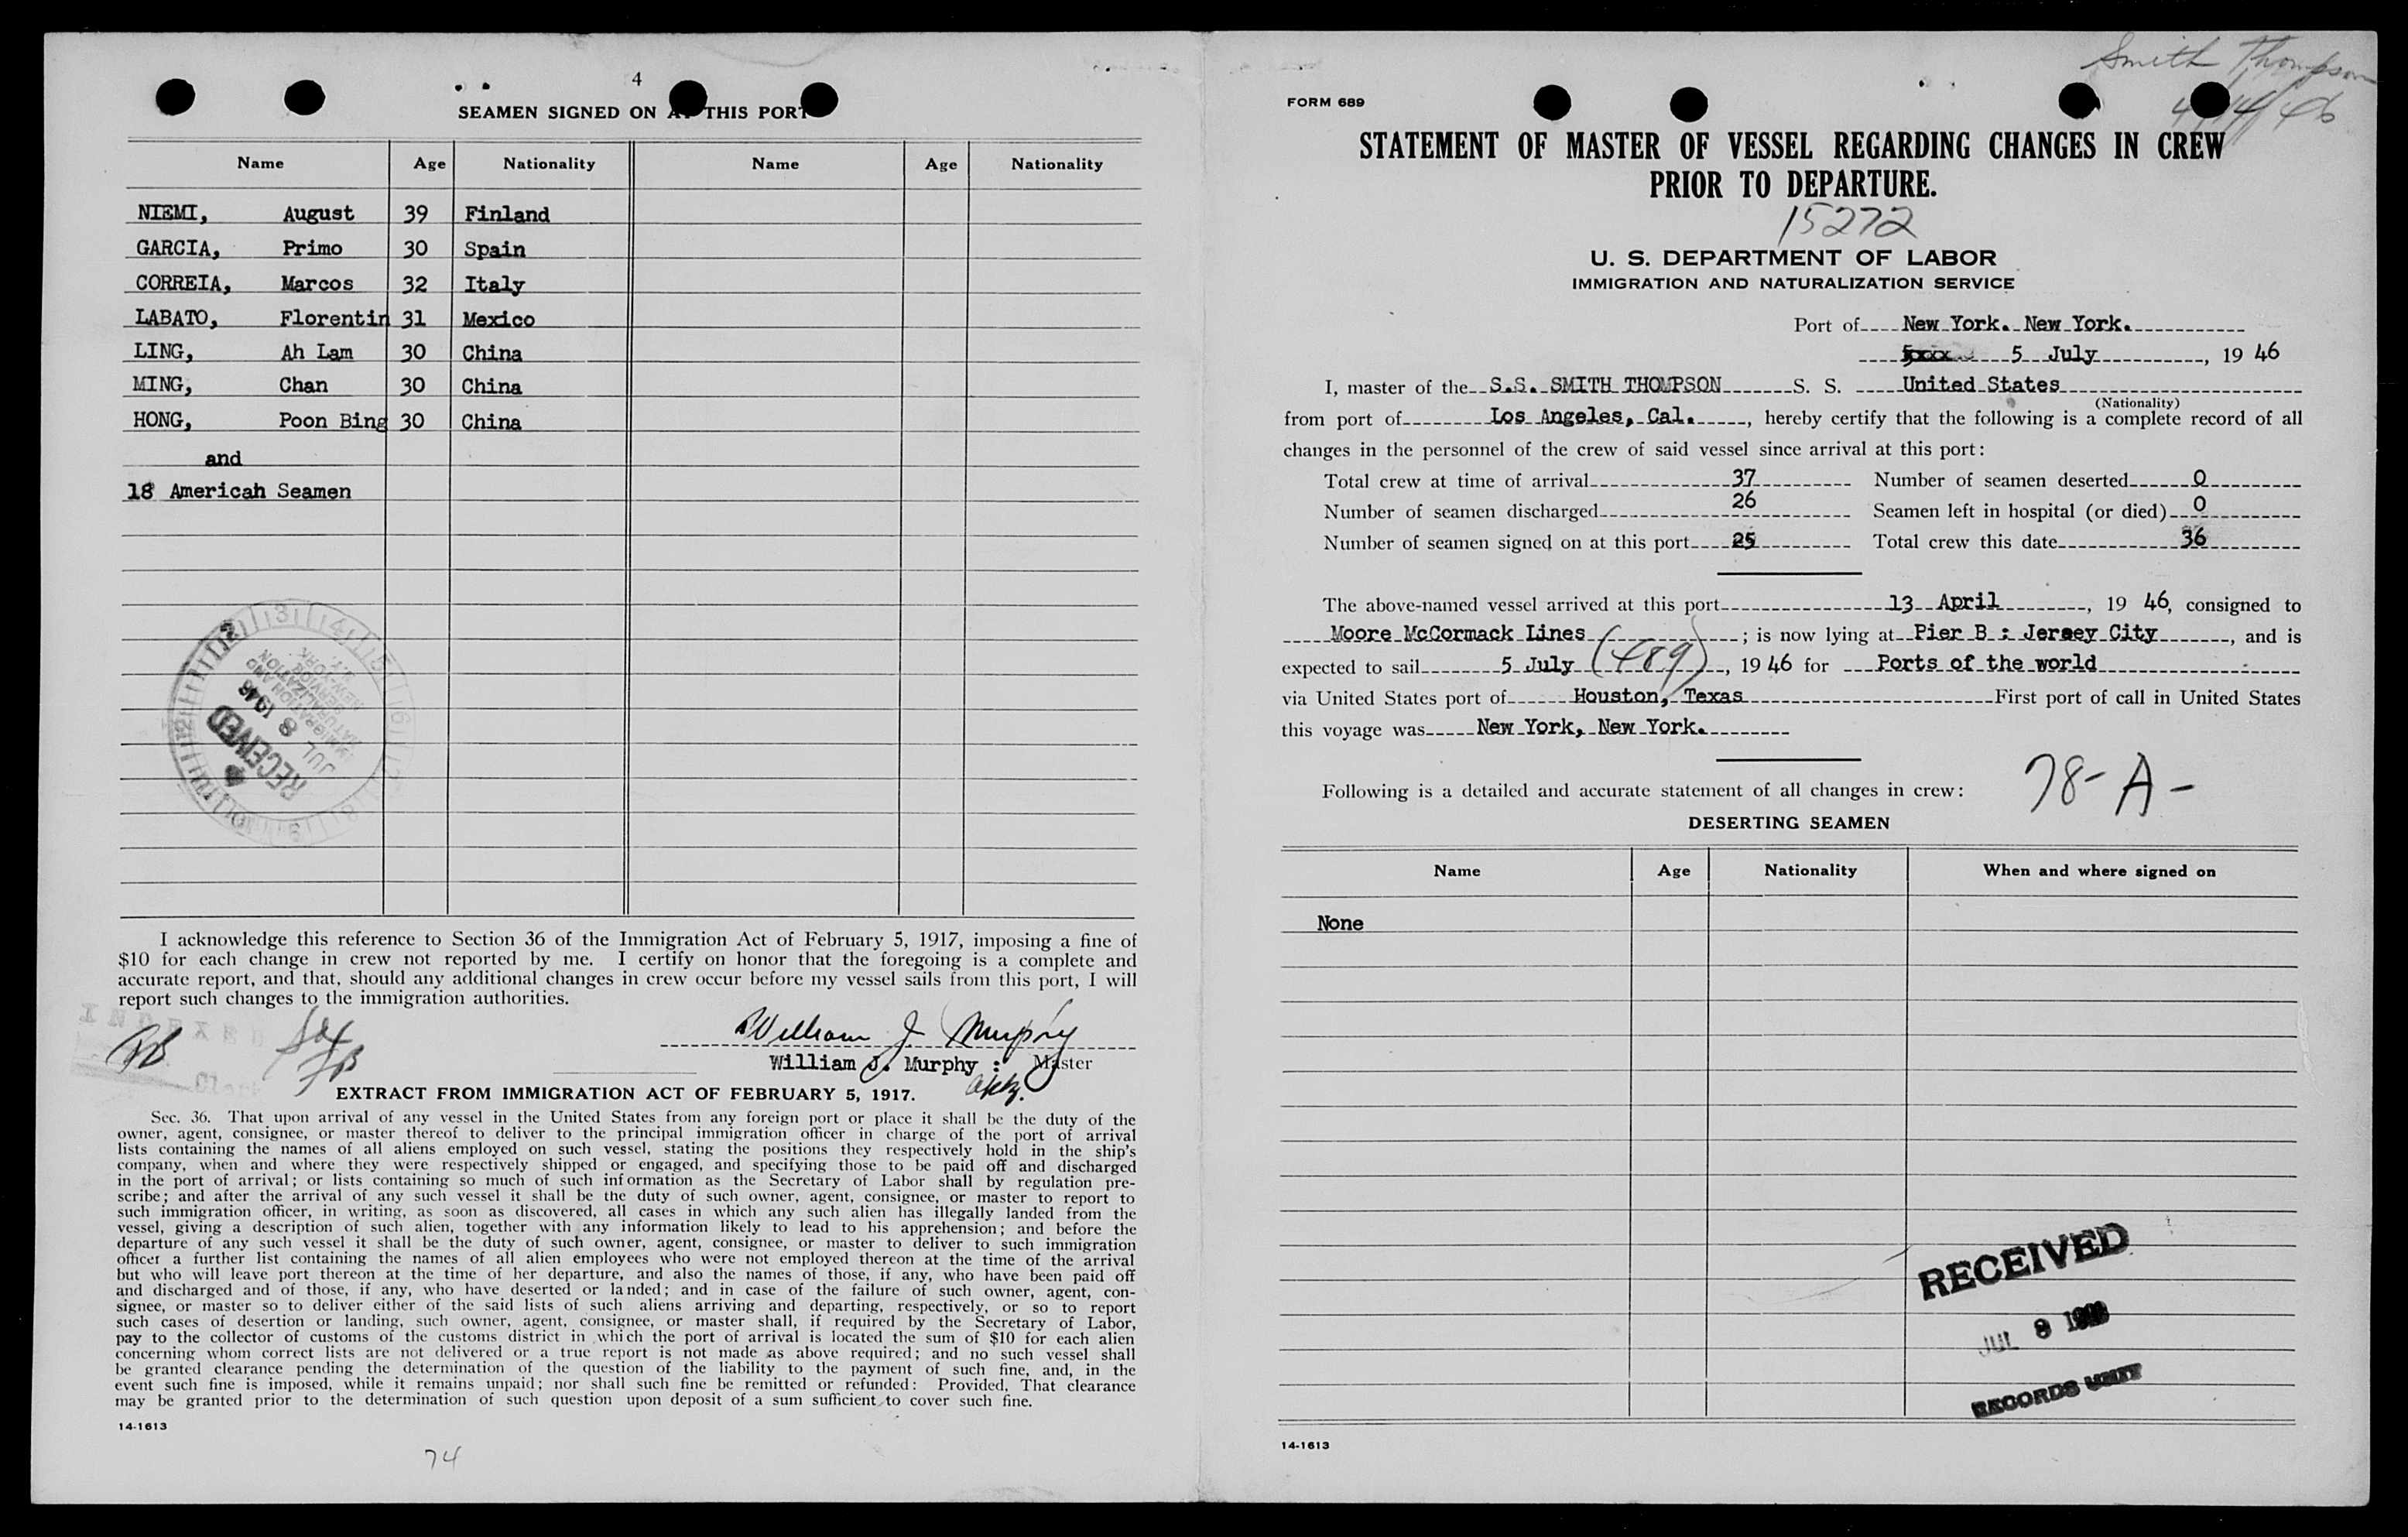 4
SEAMEN SIGNED ON AT THIS PORT
Name Age Nationality Name Age Nationality
NIEMI, August 39 Finland
GARCIA, Primo 30 Spain
CORREIA, Marcos 32 Italy
LABATO, Florentin 31 Mexico
LING, Ah Lam 30 China
MING, Chan 30 China
HONG, Poon Bing 30 China
and
18 American Seamen
RECEIVED
JUL 8 1946
I acknowledge this reference to Section 36 of the Immigration Act of February 5, 1917, imposing a fine of
$10 for each change in crew not reported by me. I certify on honor that the foregoing is a complete and
accurate report, and that, should any additional changes in crew occur before my vessel sails from this port, I will
report such changes to the immigration authorities.
William J. Murphy
William J. Murphy : Master
EXTRACT FROM IMMIGRATION ACT OF FEBRUARY 5, 1917.
Sec. 36. That upon arrival of any vessel in the United States from any foreign port or place it shall be the duty of the
owner, agent, consignee, or master thereof to deliver to the principal immigration officer in charge of the port of arrival
lists containing the names of all aliens employed on such vessel, stating the positions they respectively hold in the ship's
company, when and where they were respectively shipped or engaged, and specifying those to be paid off and discharged
in the port of arrival; or lists containing so much of such information as the Secretary of Labor shall by regulation pre-
scribe; and after the arrival of any such vessel it shall be the duty of such owner, agent, consignee, or master to report to
such immigration officer, in writing, as soon as discovered, all cases in which any such alien has illegally landed from the
vessel, giving a description of such alien, together with any information likely to lead to his apprehension; and before the
departure of any such vessel it shall be the duty of such owner, agent, consignee, or master to deliver to such immigration
officer a further list containing the names of all alien employees who were not employed thereon at the time of the arrival
but who will leave port thereon at the time of her departure, and also the names of those, if any, who have been paid off
and discharged and of those, if any, who have deserted or landed; and in case of the failure of such owner, agent, con-
signee, or master so to deliver either of the said lists of such aliens arriving and departing, respectively, or so to report
such cases of desertion or landing, such owner, agent, consignee, or master shall, if required by the Secretary of Labor,
pay to the collector of customs of the customs district in which the port of arrival is located the sum of $10 for each alien
concerning whom correct lists are not delivered or a true report is not made as above required; and no such vessel shall
be granted clearance pending the determination of the question of the liability to the payment of such fine, and, in the
event such fine is imposed, while it remains unpaid; nor shall such fine be remitted or refunded: Provided, That clearance
may be granted prior to the determination of such question upon deposit of a sum sufficient to cover such fine.
14-1613
74
Smith Thompson
4/14/46
FORM 689
STATEMENT OF MASTER OF VESSEL REGARDING CHANGES IN CREW
PRIOR TO DEPARTURE.
15272
U. S. DEPARTMENT OF LABOR
IMMIGRATION AND NATURALIZATION SERVICE
Port of New York. New York.
5 July, 19 46
I, master of the S.S. SMITH THOMPSON S. S. United States
(Nationality)
from port of Los Angeles, Cal., hereby certify that the following is a complete record of all
changes in the personnel of the crew of said vessel since arrival at this port:
Total crew at time of arrival 37 Number of seamen deserted 0
Number of seamen discharged 26 Seamen left in hospital (or died) 0
Number of seamen signed on at this port 25 Total crew this date 36
The above-named vessel arrived at this port 13 April, 19 46, consigned to
Moore McCormack Lines ; is now lying at Pier B : Jersey City, and is
expected to sail 5 July (489), 19 46 for Ports of the world
via United States port of Houston, Texas First port of call in United States
this voyage was New York, New York.
Following is a detailed and accurate statement of all changes in crew:
78-A-
DESERTING SEAMEN
Name Age Nationality When and where signed on
None
RECEIVED
JUL 8 1946
RECORDS UNIT
14-1613